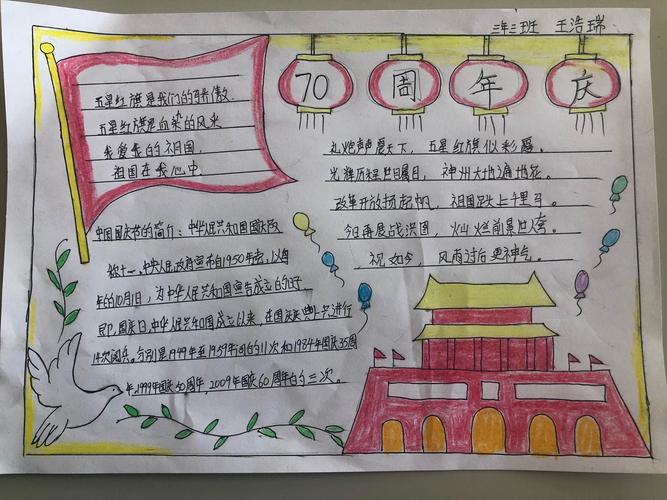 三年三班 王浩瑞
70周年庆
五星红旗是我们的骄傲
五星红旗是血染的风采
我爱我的祖国
祖国在我心中
礼炮声声震天下，五星红旗似彩霞。
光辉历程世目，神州大地遍地花。
改革开放扬起帆，祖国跃上千里马。
今日再展战洪图，灿烂前景。
祝如今，风雨过后更神气。
中国国庆节的简介：中华人民共和国国庆
十一，中央人民政府宣布自1950年，以每
年的10月1日，为中华人民共和国宣告成立的
即国庆日，中华人民共和国成立以来，在国庆典上共进行
14次阅兵。分别是1949年至1959年间的11次和1984年国庆35周
年，1999年国庆50周年，2009年国庆60周年的三次。